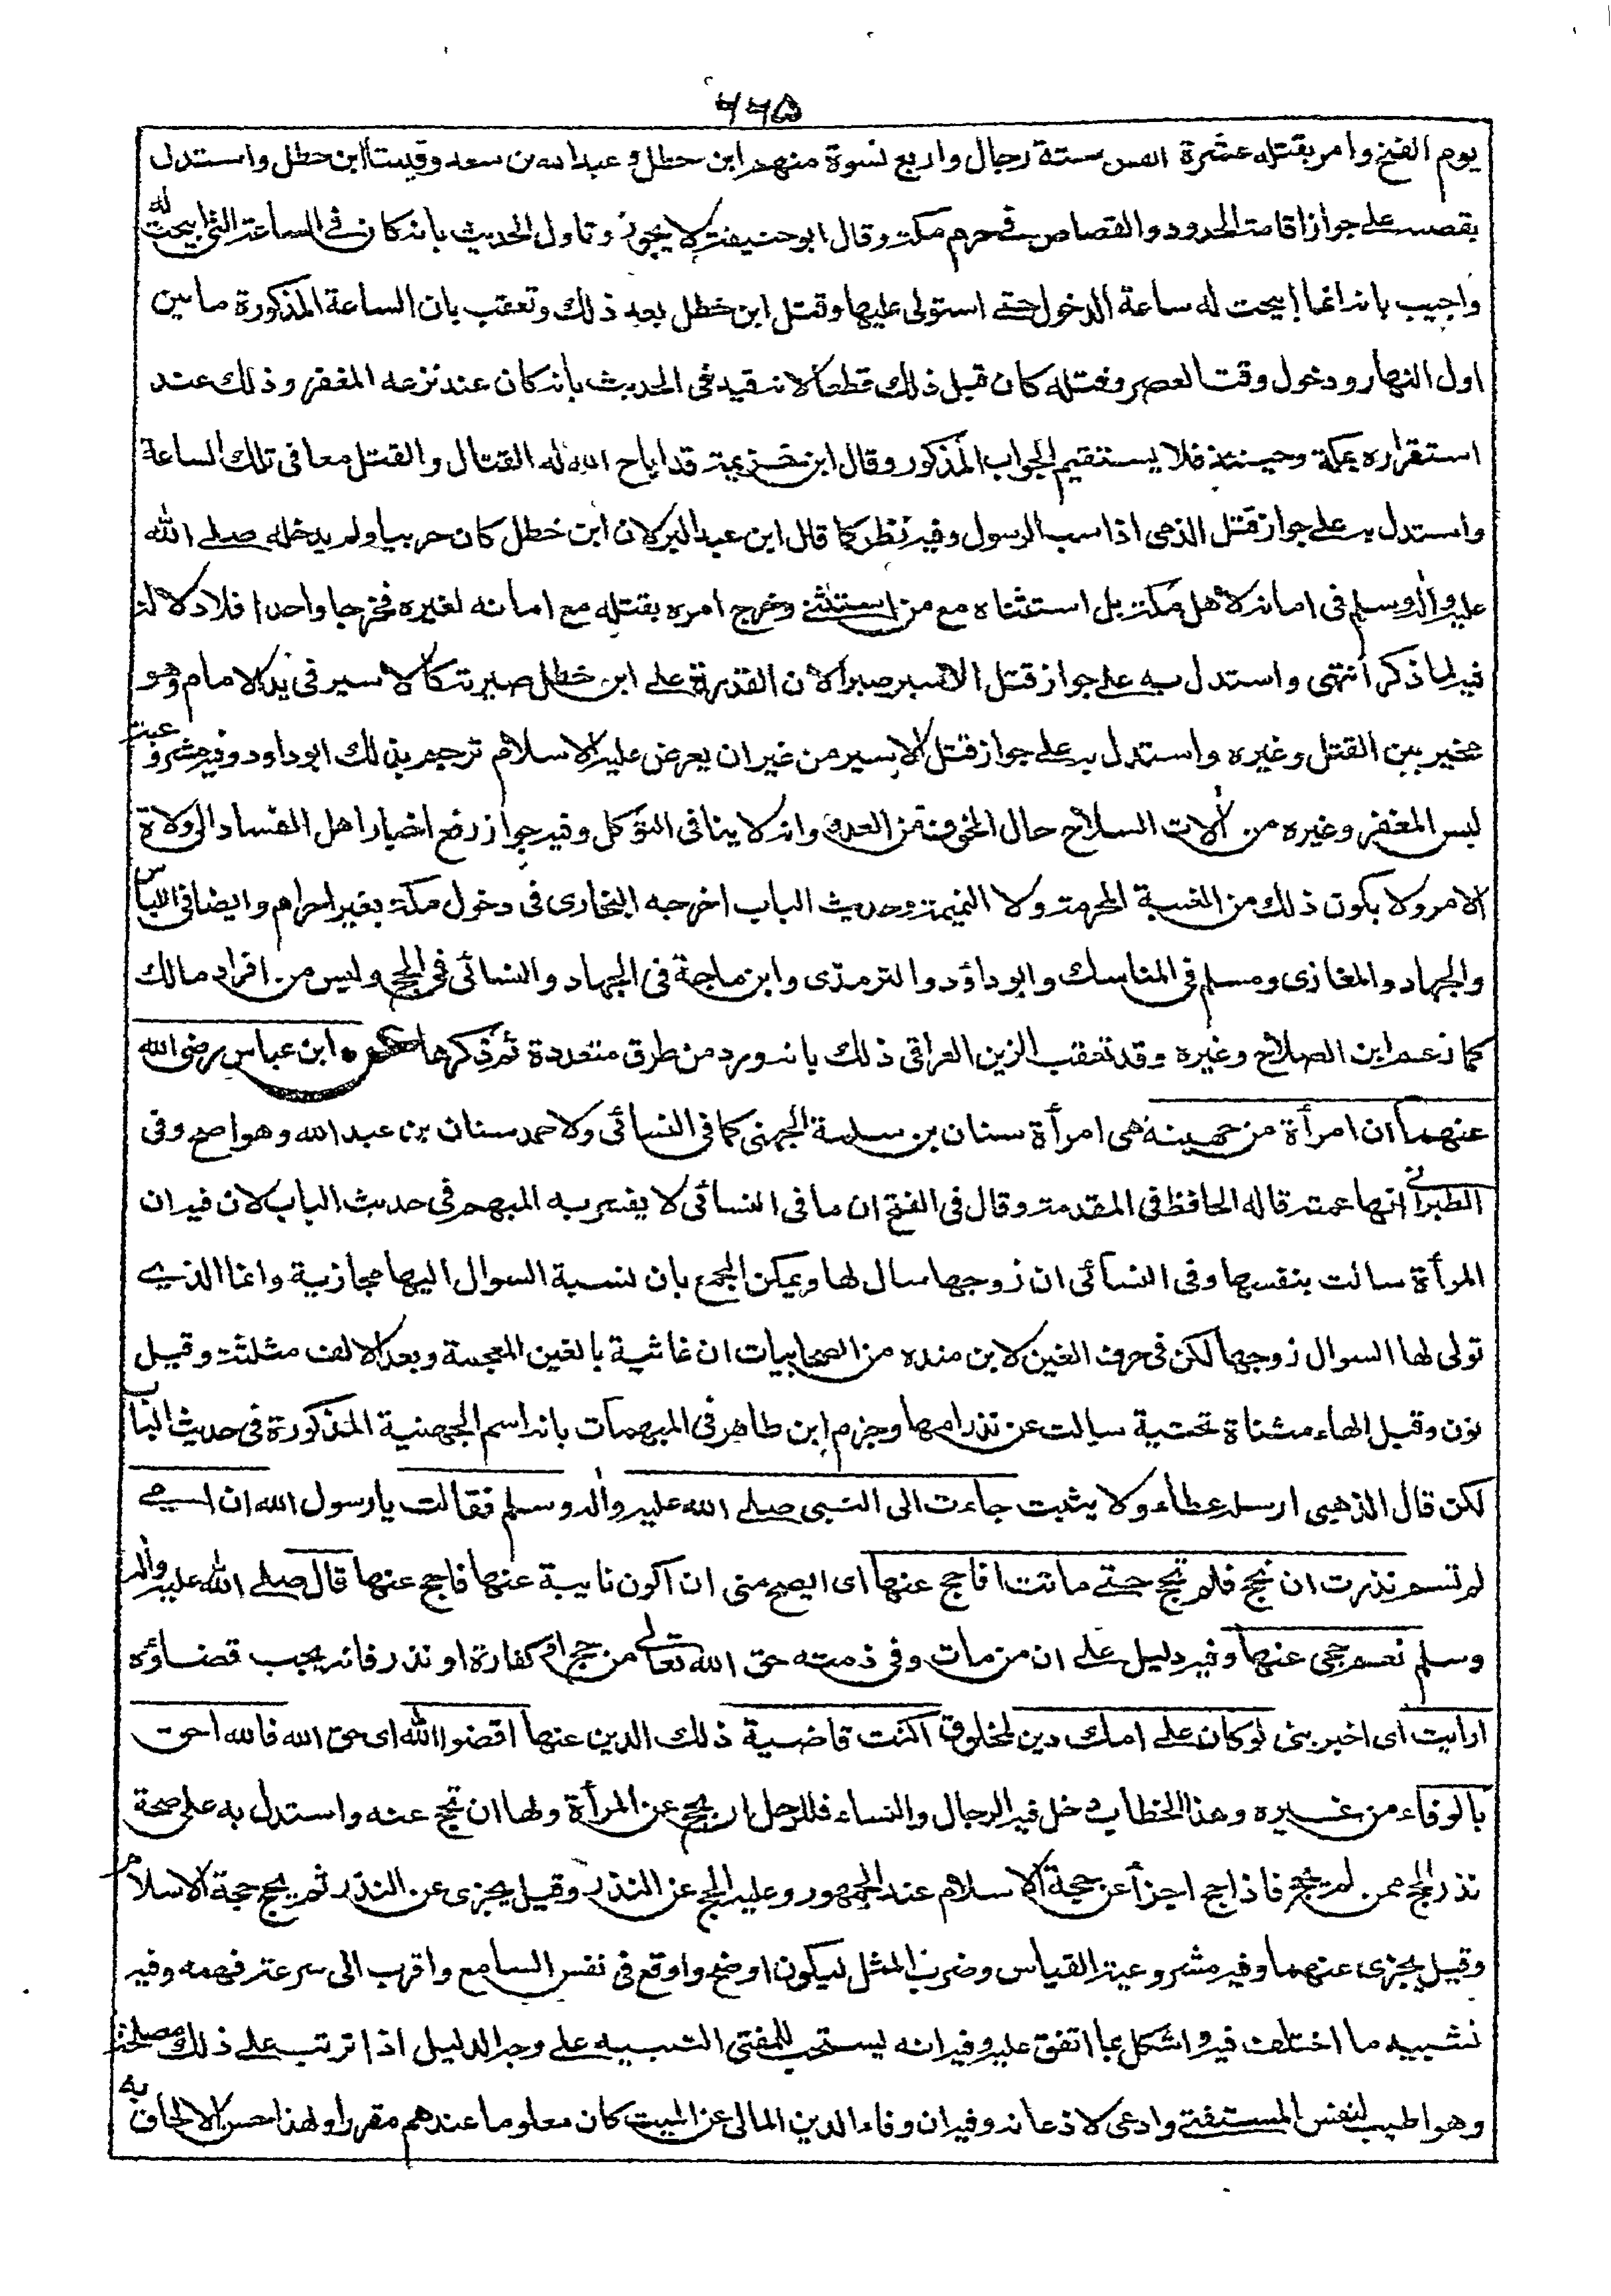 ٦٦٥
يوم الفتح وامر بقتله عشرة انفس ستة رجال واربع نسوة منهم ابن خطل و عبد الله بن سعد وقينتا ابن خطل واستدل
بقصته على جواز اقامة الحدود والقصاص فى حرم مكة وقال ابو حنيفة لا يجوز وتاول الحديث بانه كان فى الساعة التى ابيحت له
واجيب بانه انما ابيحت له ساعة الدخول حتى استولى عليها وقتل ابن خطل بعد ذلك وتعقب بان الساعة المذكورة ما بين
اول النهار ودخول وقت العصر وقتله كان قبل ذلك قطعا لانه قيد فى الحديث بانه كان عند نزعه المغفر وذلك عند
استقراره بمكة وحينئذ فلا يستقيم الجواب المذكور وقال ابن خزيمة قد اباح الله له القتال والقتل معا فى تلك الساعة
واستدل به على جواز قتل الذمى اذا سب الرسول وفيه نظر كما قال ابن عبد البر لان ابن خطل كان حربيا ولم يدخله صلى الله
عليه واله وسلم فى امانه لاهل مكة بل استثناه مع من استثنى وخرج امره بقتله مع امانه لغيره مخرجا واحدا فلا دلالة
فيه لما ذكر انتهى واستدل به على جواز قتل الاسير صبرا لان القدرة على ابن خطل صيرته كالاسير فى يد الامام وهو
مخير بين القتل وغيره واستدل به على جواز قتل الاسير من غير ان يعرض عليه الاسلام ترجم بذلك ابو داود وفيه مشروعية
لبس المغفر وغيره من آلات السلاح حال الخوف من العدو وانه لا ينافى التوكل وفيه جواز رفع اخبار اهل الفساد الى ولاة
الامر ولا يكون ذلك من الغيبة المحرمة ولا النميمة وحديث الباب اخرجه البخارى فى دخول مكة بغير احرام وايضا فى اللباس
والجهاد والمغازى ومسلم فى المناسك وابو داؤد والترمذى وابن ماجة فى الجهاد والنسائى فى الحج وليس من افراد مالك
كما زعم ابن الصلاح وغيره وقد تعقب الزين العراقى ذلك بانه ورد من طرق متعددة ثم ذكرها عن ابن عباس رضى الله
عنهما ان امرأة من جهينة هى امرأة سنان بن سلمة الجهنى كما فى النسائى ولاحمد سنان بن عبد الله وهو اصح وفى
الطبرانى انها عمته قاله الحافظ فى المقدمة وقال فى الفتح ان ما فى النسائى لا يفسر به المبهم فى حديث الباب لان فيه ان
المرأة سالت بنفسها وفى النسائى ان زوجها سال لها ويمكن الجمع بان نسبة السوال اليها مجازية وانما الذى
تولى لها السوال زوجها لكن فى حرف الغين لابن منده من الصحابيات ان غاثية بالغين المعجمة وبعد الالف مثلثة وقيل
نون وقبل الهاء مثناة تحتية سالت عن نذر امها وجزم ابن طاهر فى المبهمات بانه اسم الجهنية المذكورة فى حديث الباب
لكن قال الذهبى ارسله عطاء ولا يثبت جاءت الى النبى صلى الله عليه واله وسلم فقالت يا رسول الله ان امى
لم تسم نذرت ان تحج فلم تحج حتى ماتت افاحج عنها اى ايصح منى ان اكون نايبة عنها فاحج عنها قال صلى الله عليه واله
وسلم نعم حجى عنها وفيه دليل على ان من مات وفى ذمته حق الله تعالى من حج او كفارة او نذر فانه يجب قضاؤه
ارايت اى اخبرينى لو كان على امك دين لمخلوق اكنت قاضية ذلك الدين عنها اقضوا الله اى حق الله فالله احق
بالوفاء من غيره وهذا الخطاب دخل فيه الرجال والنساء فللرجل ان يحج عن المرأة ولها ان تحج عنه واستدل به على صحة
نذر الحج ممن لم يحج فاذا حج اجزأ عن حجة الاسلام عند الجمهور وعليه الحج عن النذر وقيل يجزى عن النذر ثم يحج حجة الاسلام
وقيل يجزى عنهما وفيه مشروعية القياس وضرب المثل ليكون اوضح واوقع فى نفس السامع واقرب الى سرعة فهمه وفيه
تشبيه ما اختلف فيه واشكل بما اتفق عليه وفيه انه يستحب للمفتى التنبيه على وجه الدليل اذا ترتب على ذلك مصلحة
وهو اطيب لنفس المستفتى وادعى لاذعانه وفيه ان وفاء الدين المالى عن الميت كان معلوما عندهم مقررا ولهذا حسن الالحاق به